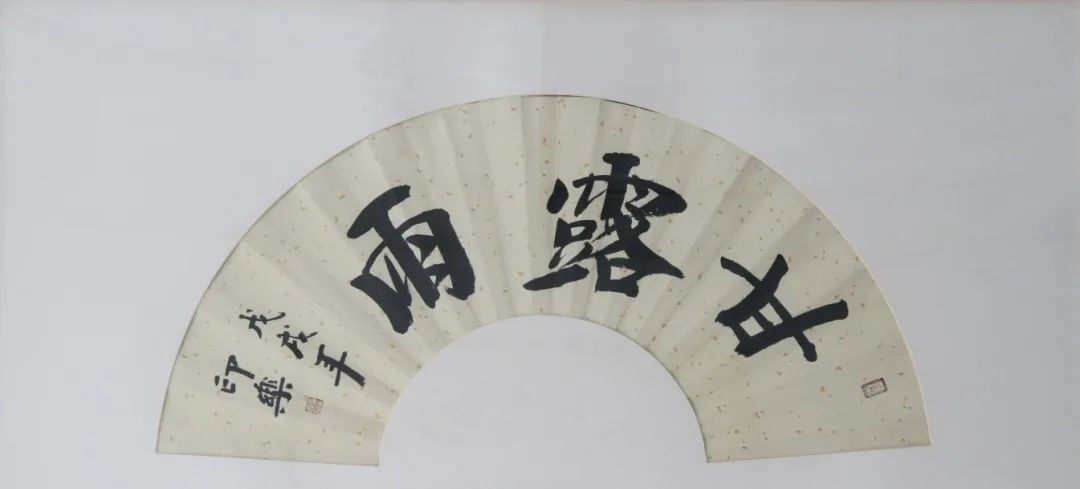 甘露雨
戊戌年
印樂